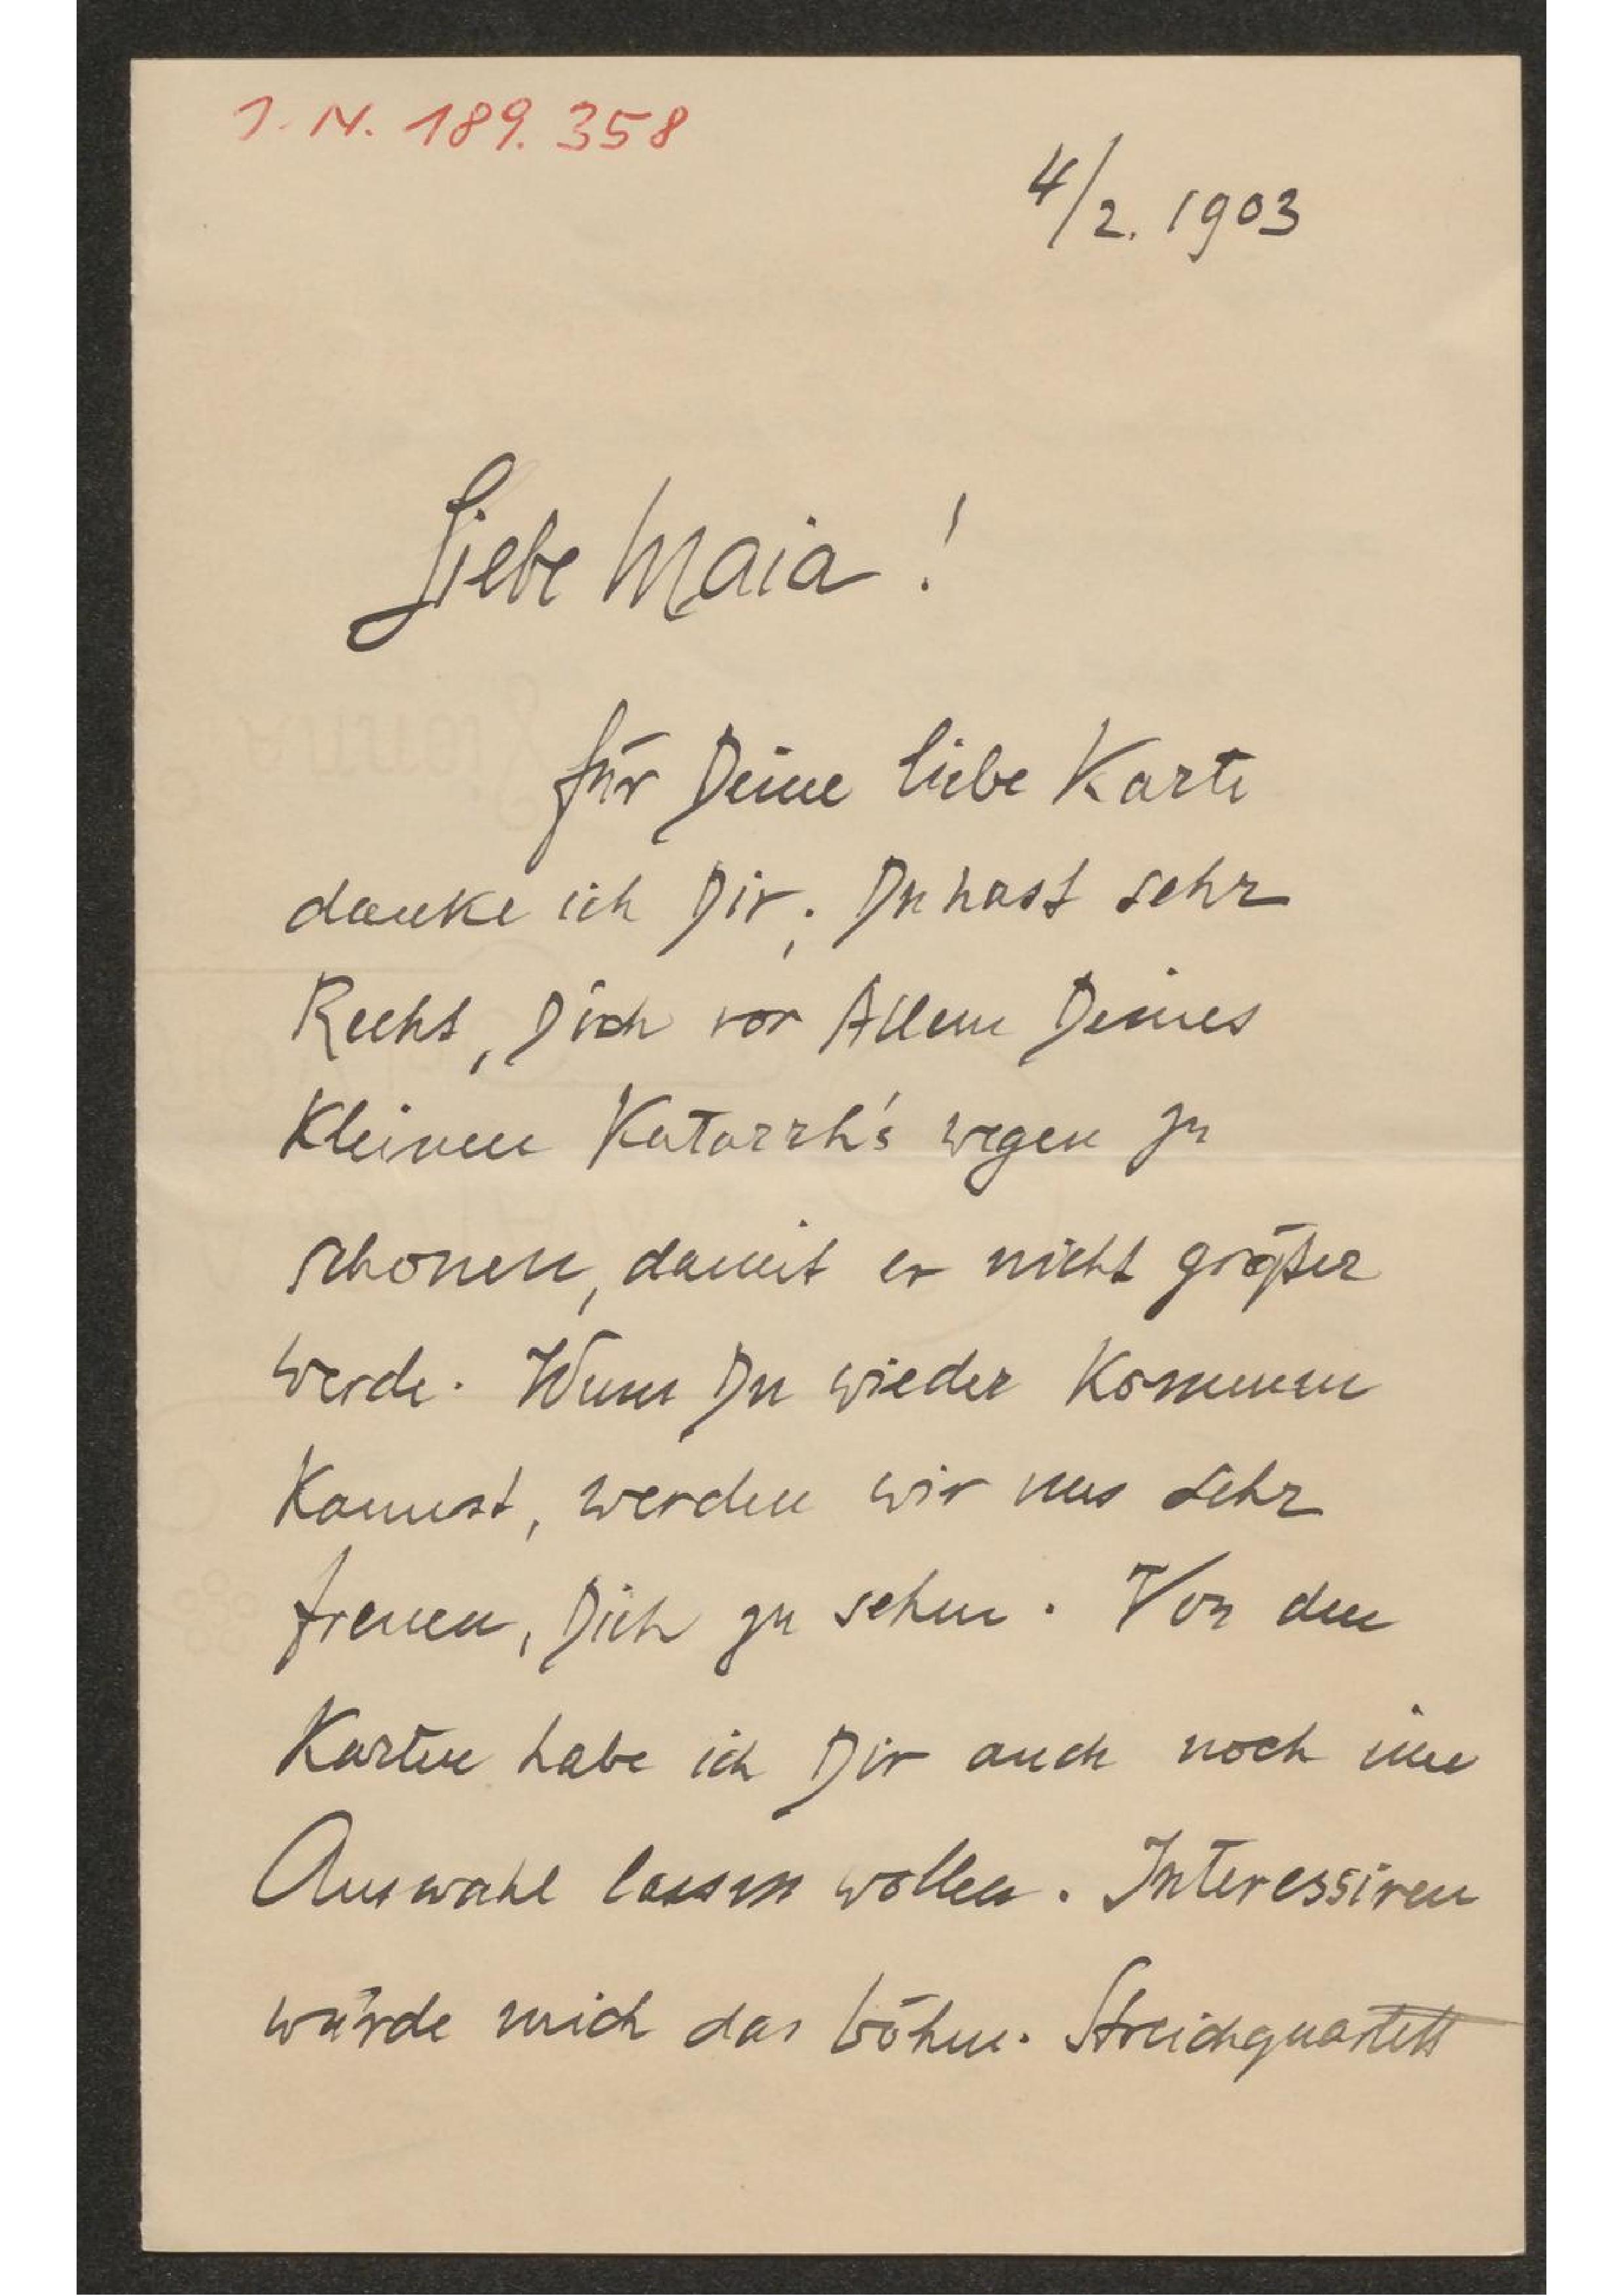 J. N. 189.358
4/2. 1903
Liebe Maia!
für Deine liebe Karte
danke ich Dir; Du hast sehr
Recht, Dich vor Allem Deines
kleinen Katarrh's wegen zu
schonen, damit er nicht größer
werde. Wenn Du wieder kommen
kannst, werden wir uns sehr
freuen, Dich zu sehen. Von den
Karten habe ich Dir auch noch eine
Auswahl lassen wollen. Interessiren
würde mich das böhm. Streichquartett